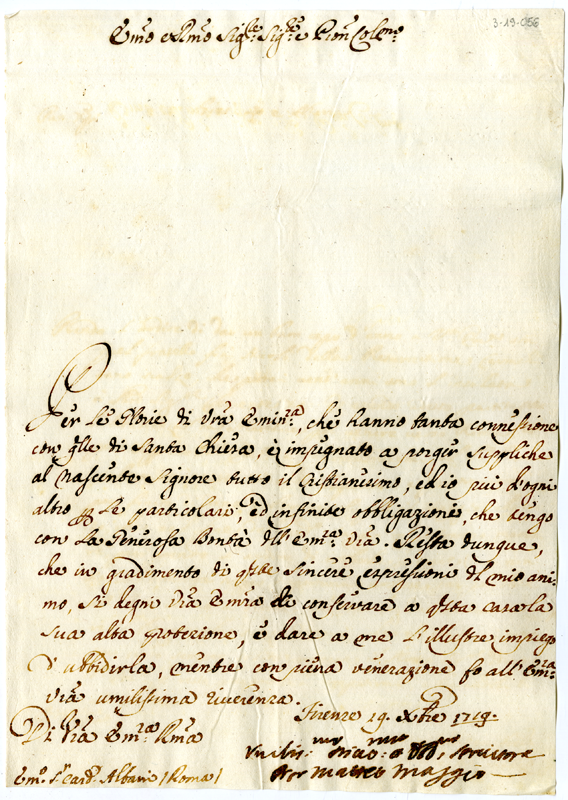 3-19-056
Em͞o e Rm͞o Sig:re Sig:re e Pron͞ Col:mo
Per le Glorie di Vr͞a Emin:za, che hanno tanta connessione
con q͞lle di Santa Chiesa, è impegnato a porger suppliche
al Nascente Signore tutto il Cristianesimo, ed io più d'ogni
altro p le particolari, ed infinite obbligazione, che tengo
con la Generosa Bontà dell'Em:za Vr͞a. Resta dunque,
che in gradimento di q͞ste sincere espressioni del mio ani-
mo, si degni Vr͞a Em͞za di conservare a q͞sta casa la
sua alta protezione, e dare a me l'illustre impiego
d'ubbidirla, mentre con piena venerazione fo all'Em:za
Vr͞a umilissima riverenza.
Firenze 19. Xbre 1719.
Di Vr͞a Em:za Rm͞a
Em:o S:r Card: Albani (Roma)
servitore
Matteo Maggio